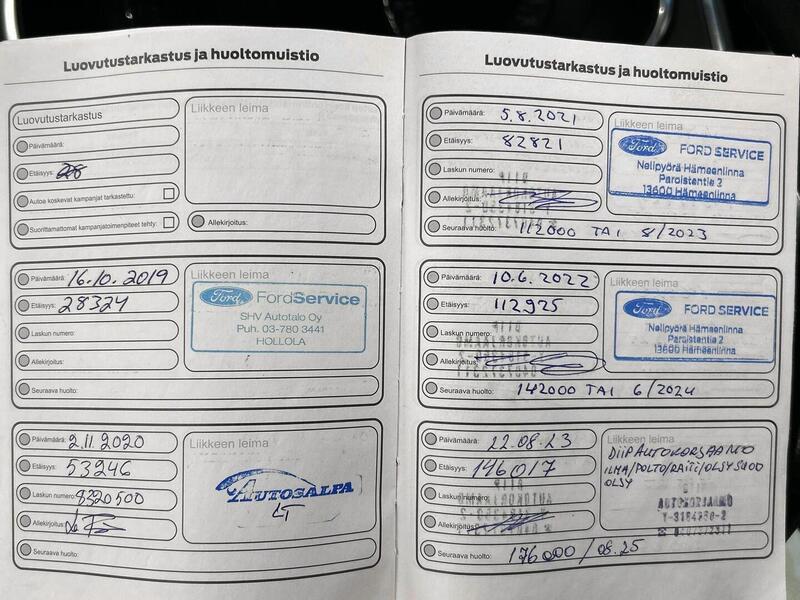 Luovutustarkastus ja huoltomuistio
Luovutustarkastus
Päivämäärä:
Etäisyys:
Autoa koskevat kampanjat tarkasteltu:
Suorittamattomat kampanjatoimenpiteet tehty:
Liikkeen leima
Allekirjoitus:
Päivämäärä: 16.10.2019
Etäisyys: 28324
Laskun numero:
Allekirjoitus:
Seuraava huolto:
Liikkeen leima
Ford FordService
SHV Autotalo Oy
Puh. 03-780 3441
HOLLOLA
Päivämäärä: 2.11.2020
Etäisyys: 53246
Laskun numero: 8320500
Allekirjoitus:
Seuraava huolto:
Liikkeen leima
AUTOSALPA
LT
Luovutustarkastus ja huoltomuistio
Päivämäärä: 5.8.2021
Etäisyys: 82821
Laskun numero:
Allekirjoitus:
Seuraava huolto: 112000 TAI 8/2023
Liikkeen leima
Ford FORD SERVICE
Nelipyörä Hämeenlinna
Paroistentie 2
13600 Hämeenlinna
Päivämäärä: 10.6.2022
Etäisyys: 112925
Laskun numero:
Allekirjoitus:
Seuraava huolto: 142000 TAI 6/2024
Liikkeen leima
Ford FORD SERVICE
Nelipyörä Hämeenlinna
Paroistentie 2
13600 Hämeenlinna
Päivämäärä: 22.08.23
Etäisyys: 146017
Laskun numero:
Allekirjoitus:
Seuraava huolto: 176000/08.25
Liikkeen leima
DIIP AUTOKORJAAMO
ILMA/POLTO/RAITI/ÖLJYSUOD
ÖLJY
AUTOKORJAAMO